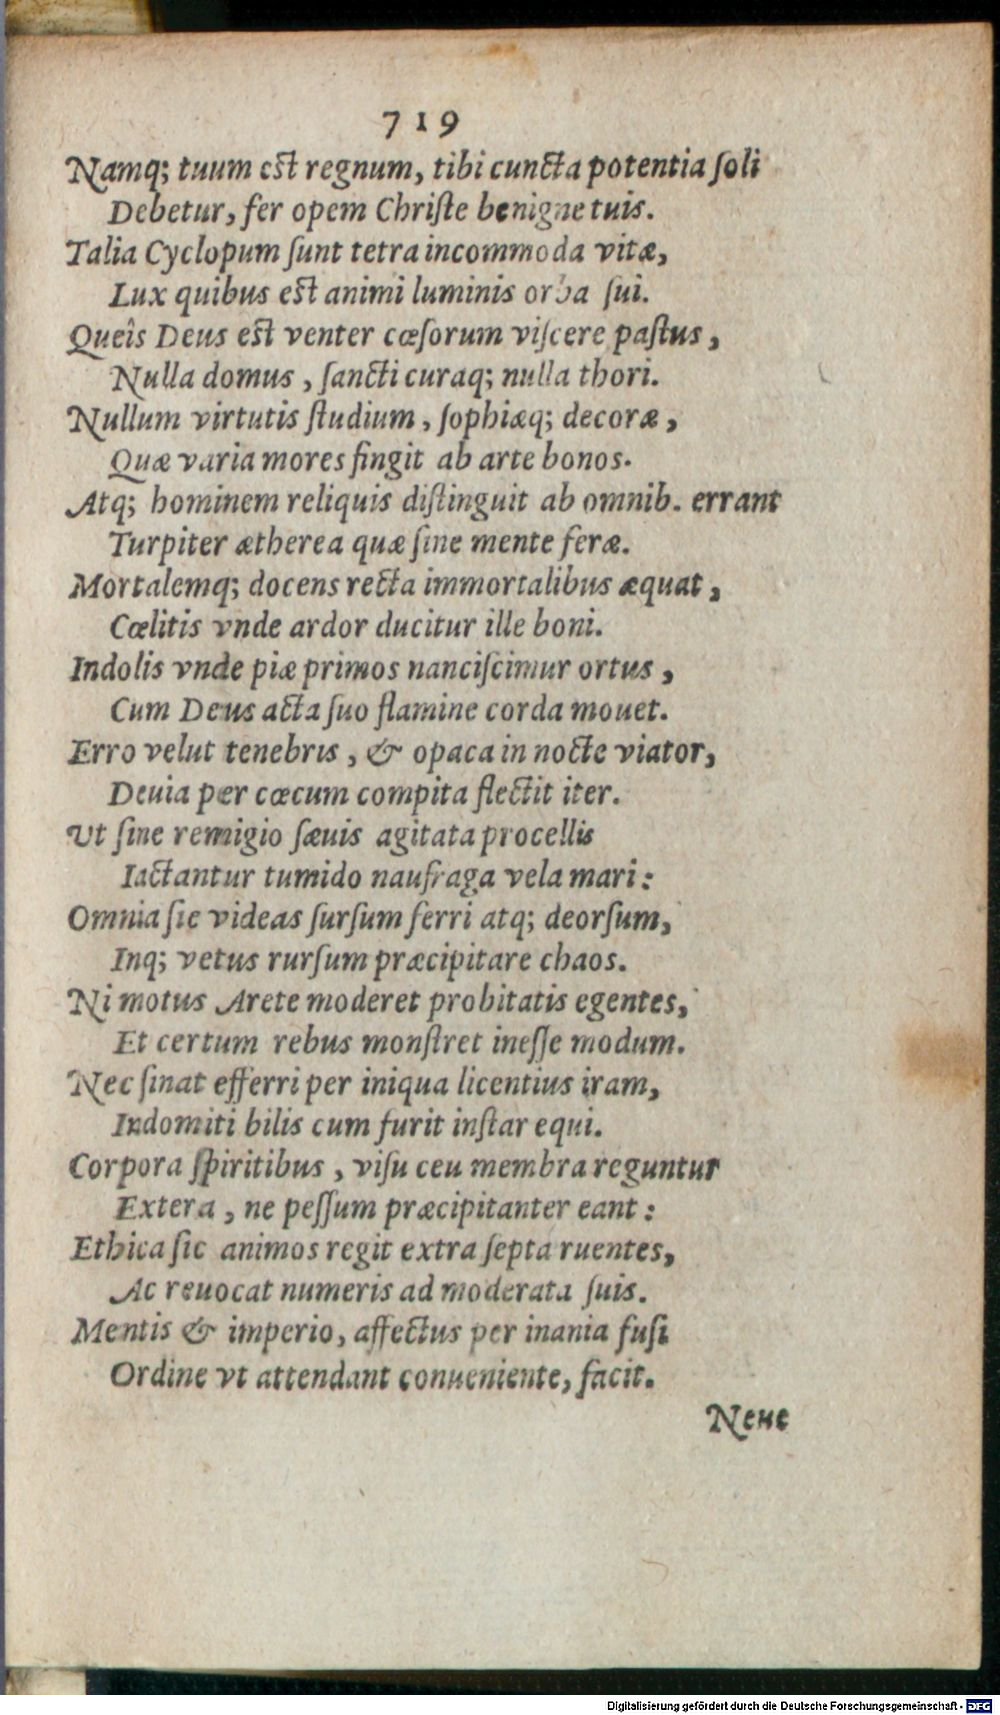 719
Namq; tuum est regnum, tibi cuncta potentia soli
Debetur, fer opem Christe benigne tuis.
Talia Cyclopum sunt tetra incommoda vitæ,
Lux quibus est animi luminis orba sui.
Queîs Deus est venter cœsorum viscere pastus,
Nulla domus, sancti curaq; nulla thori.
Nullum virtutis studium, sophiæq; decoræ,
Quæ varia mores fingit ab arte bonos.
Atq; hominem reliquis distinguit ab omnib. errant
Turpiter ætherea quæ sine mente feræ.
Mortalemq; docens recta immortalibus æquat,
Cœlitis vnde ardor ducitur ille boni.
Indolis vnde piæ primos nanciscimur ortus,
Cum Deus acta suo flamine corda mouet.
Erro velut tenebris, & opaca in nocte viator,
Deuia per cœcum compita flectit iter.
Vt sine remigio sæuis agitata procellis
Iactantur tumido naufraga vela mari:
Omnia sic videas sursum ferri atq; deorsum,
Inq; vetus rursum præcipitare chaos.
Ni motus Arete moderet probitatis egentes,
Et certum rebus monstret inesse modum.
Nec sinat efferri per iniqua licentius iram,
Indomiti bilis cum furit instar equi.
Corpora spiritibus, visu ceu membra reguntur
Extera, ne pessum præcipitanter eant:
Ethica sic animos regit extra septa ruentes,
Ac reuocat numeris ad moderata suis.
Mentis & imperio, affectus per inania fusi
Ordine vt attendant conueniente, facit.
Neue
Digitalisierung gefördert durch die Deutsche Forschungsgemeinschaft - DFG